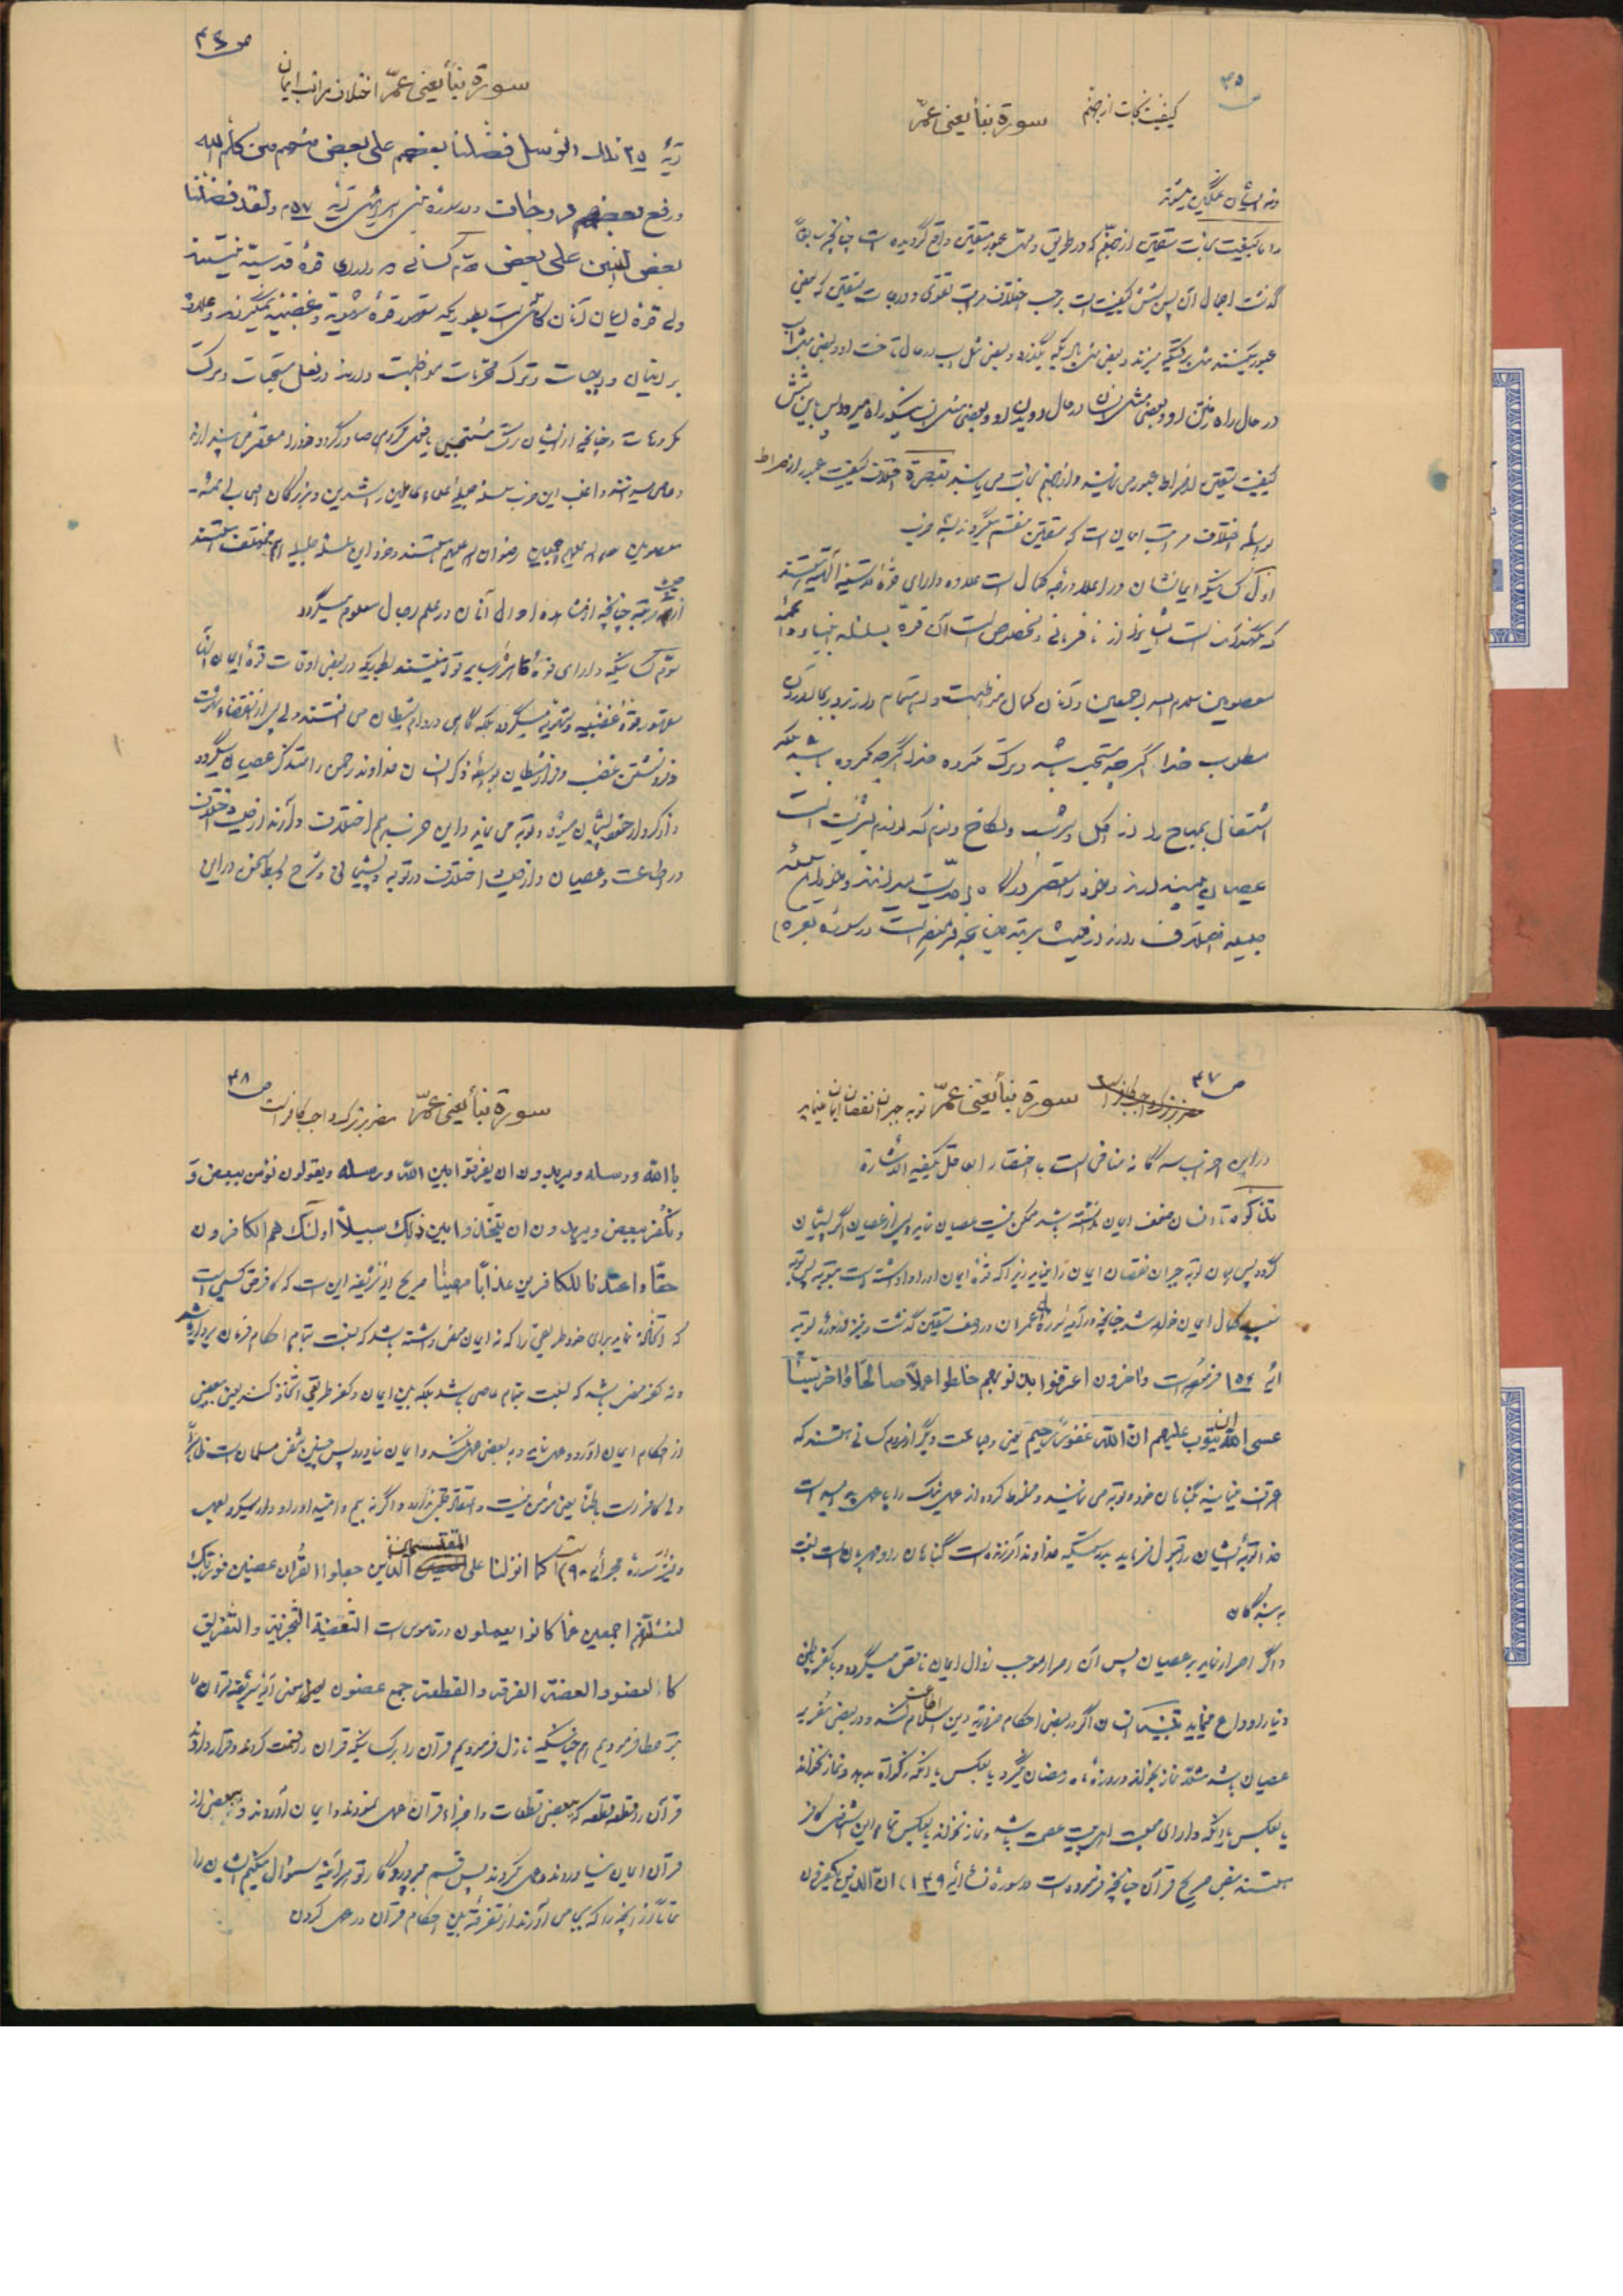 ص ۴۵
کیفیت نجات از جهنم سورة نبأ یعنی عمّ
و نه ایشان غمگین میشوند
و اما کیفیت نجات متقین از جهنم که در طریق و محل عبور متقین واقع گردیده است چنانچه سابقاً
گذشت اجمال آن پس بشش کیفیت است بر حسب اختلاف مراتب تقوی و درجات متقین که بعضی
عبور میکنند مثل برقیکه میزند و بعضی مثل بادیکه میگذرد و بعضی مثل اسب در حال تاخت او و بعضی مثل اسب
در حال راه رفتن او و بعضی مثل انسان در حال دویدن او و بعضی مثل انسانیکه راه میرود پس باین شش
کیفیت متقین از صراط عبور می نمایند و از جهنم نجات می یابند تبصرة اختلاف کیفیت عبور از صراط
بواسطه اختلاف مراتب ایمان است که متقین منقسم میگردند بسه حزب
اول کسانیکه ایمانشان در اعلا درجه کمال است علاوه دارای قوّه قدسیّه الهیّه هستند
که نگهدارنده است ایشانرا از نافرمانی و مخصوص است آن قوّه بسلسله انبیاء و ائمّه
معصومین سلام الله اجمعین و آنان کمال مواظبت و اهتمام دارند در بجا آوردن
مطلوب خدا اگر چه مستحب باشد و ترک مکروه خدا اگر چه مکروه باشد بلکه
اشتغال بمباح را از اکل و شرب و نکاح و نوم که لوازم بشریّت است
عصیان می بینند و خود را مقصر درگاه احدیّت میدانند و خود این سلسله
جلیله اختلاف دارند از حیث مرتبه چنانچه فرموده است در سوره بقره
ص ۴۶
سورة نبأ یعنی عمّ اختلاف مراتب ایمان
آیهٔ ۲۵ تلک الرسل فضلنا بعضهم علی بعض منهم من کلم الله
و رفع بعضهم درجات و در سوره بنی اسرائیل آیه ۵۷ و لقد فضلنا
بعض النبین علی بعض دوّم کسانی که دارای قوّه قدسیّه نیستند
ولی قوّه ایمان آنان کامل است بطوریکه مقهور قوّه شهویّه و غضبیّه نمیگردند و علاوه
بر اتیان واجبات و ترک محرمات مواظبت دارند در فعل مستحبات و ترک
مکروهات و چنانچه از ایشان ترک مستحبی یا فعل مکروهی صادر گردد خود را مقصر می پندارند
و عاصی میدانند و اغلب این حزب سلسله جلیله علماء عاملین راشدین و بزرگان اصحاب ائمه
معصومین صلوات الله علیهم اجمعین رضوان الله علیهم هستند و خود این سلسله جلیله هم مختلف هستند
از حیث مرتبه چنانچه از مشاهده احوال آنان در علم رجال معلوم میگردد
سوّم کسانیکه دارای قوّه کامله سایر قوا نیستند بطوریکه در بعضی اوقات قوّه ایمان آنان
مقهور قوّه غضبیّه و شهویّه میگردد بلکه گاهی در دام شیطان می افتند ولی پس از انقضاء شهوت
و فرو نشستن غضب و فرار شیطان بواسطه ذکر انسان خداوند رحمن را متذکر عصیان میگردد
و از کردار خود پشیمان میشود و توبه می نماید و این حزب هم اختلاف دارند از حیث اختلاف
در اطاعت و عصیان و از حیث اختلاف در توبه و پشیمانی و شرح و بسط سخن در این
ص ۴۷
سورة نبأ یعنی عمّ توبه جبران نقصان ایمان مینماید
در این احزاب سه گانه منافی است با اختصار العاقل یکفیه الاشارة
تذکره تا انسان ضعف ایمان نداشته باشد ممکن نیست عصیان نماید و پس از عصیان اگر پشیمان
گردد پس همان توبه جبران نقصان ایمان را مینماید زیرا که قوّه ایمان او را واداشته است بتوبه پس توبه
سبب کمال ایمان خواهد شد چنانچه در آیه سوره آل عمران در وصف متقین گذشت و نیز در سوره توبه
آیه ۱۰۲ فرموده است و اخرون اعترفوا بذنوبهم خلطوا عملاً صالحاً و اخر سیّئاً
عسی الله ان یتوب علیهم ان الله غفور رحیم یعنی و جماعت دیگر از مردم کسانی هستند که
اعتراف مینمایند بگناهان خود و توبه می نمایند و مخلوط کرده اند عمل نیک را با عمل بد امید است
خدا توبه ایشان را قبول فرماید بدرستیکه خداوند آمرزنده است گناهان را و مهربان است نسبت
به بندگان
و اگر اصرار نماید بر عصیان پس آن اصرار موجب زوال ایمان ناقص میگردد و با کفر باطن
دنیا را وداع مینماید تنبیه انسان اگر در بعض احکام ضروریّه دین اسلام اطاعت کند و در بعضی مقر به
عصیان باشد مثلاً نماز بخواند و روزهٔ ماه رمضان نگیرد یا بعکس یا آنکه زکوة بدهد و نماز نخواند
یا بعکس یا آنکه دارای محبت اهل بیت عصمت باشد و نماز نخواند یا بعکس تمام این اشخاص کافر
هستند بنص صریح قرآن چنانچه فرموده است در سوره نساء آیه ۱۴۹ ان الذین یکفرون
ص ۴۸
سورة نبأ یعنی عمّ مصر بر ترک واجب کافر است
باالله و رسله و یریدون ان یفرقوا بین الله و رسله و یقولون نؤمن ببعض وَ
و نکفر ببعض و یریدون ان یتخذوا بین ذلک سبیلاً اولئک هم الکافرون
حقّاً و اعتدنا للکافرین عذاباً مهیناً صریح آیه شریفه این است که کافر حق کسی است
که اتخاذ نماید برای خود طریقی را که نه ایمان محض داشته باشد که نسبت بتمام احکام فرمان بردار باشد
و نه کفر محض باشد که نسبت بتمام عاصی باشد بلکه بین ایمان و کفر طریقی اتخاذ کند یعنی ببعض
از احکام ایمان آورد و عمل نماید و به بعضی عمل نکند و ایمان نیاورد پس چنین شخص مسلمان است ظاهراً
ولی کافر است باطناً یعنی مؤمن نیست و اعتقاد قلبی ندارد و اگر نه بیم و امید او را وادار میکرد بعمل
و نیز در سورهٔ حجر آیه ۹۰ است کما انزلنا علی المقتسمین الذین جعلوا القرآن عضین فوربّک
لنسئلنّهم اجمعین عمّا کانوا یعملون در قاموس است التعضیة التجزیة و التفریق
کا العضو و العضة الفرقة و القطعة جمع عضون
قرآن ایمان نیاوردند و عمل نکردند پس قسم بپروردگار تو هر آینه سؤال میکنیم ایشان را
تماماً از آنچه را که بجا می آوردند از تفرقه بین احکام قرآن در عمل کردن